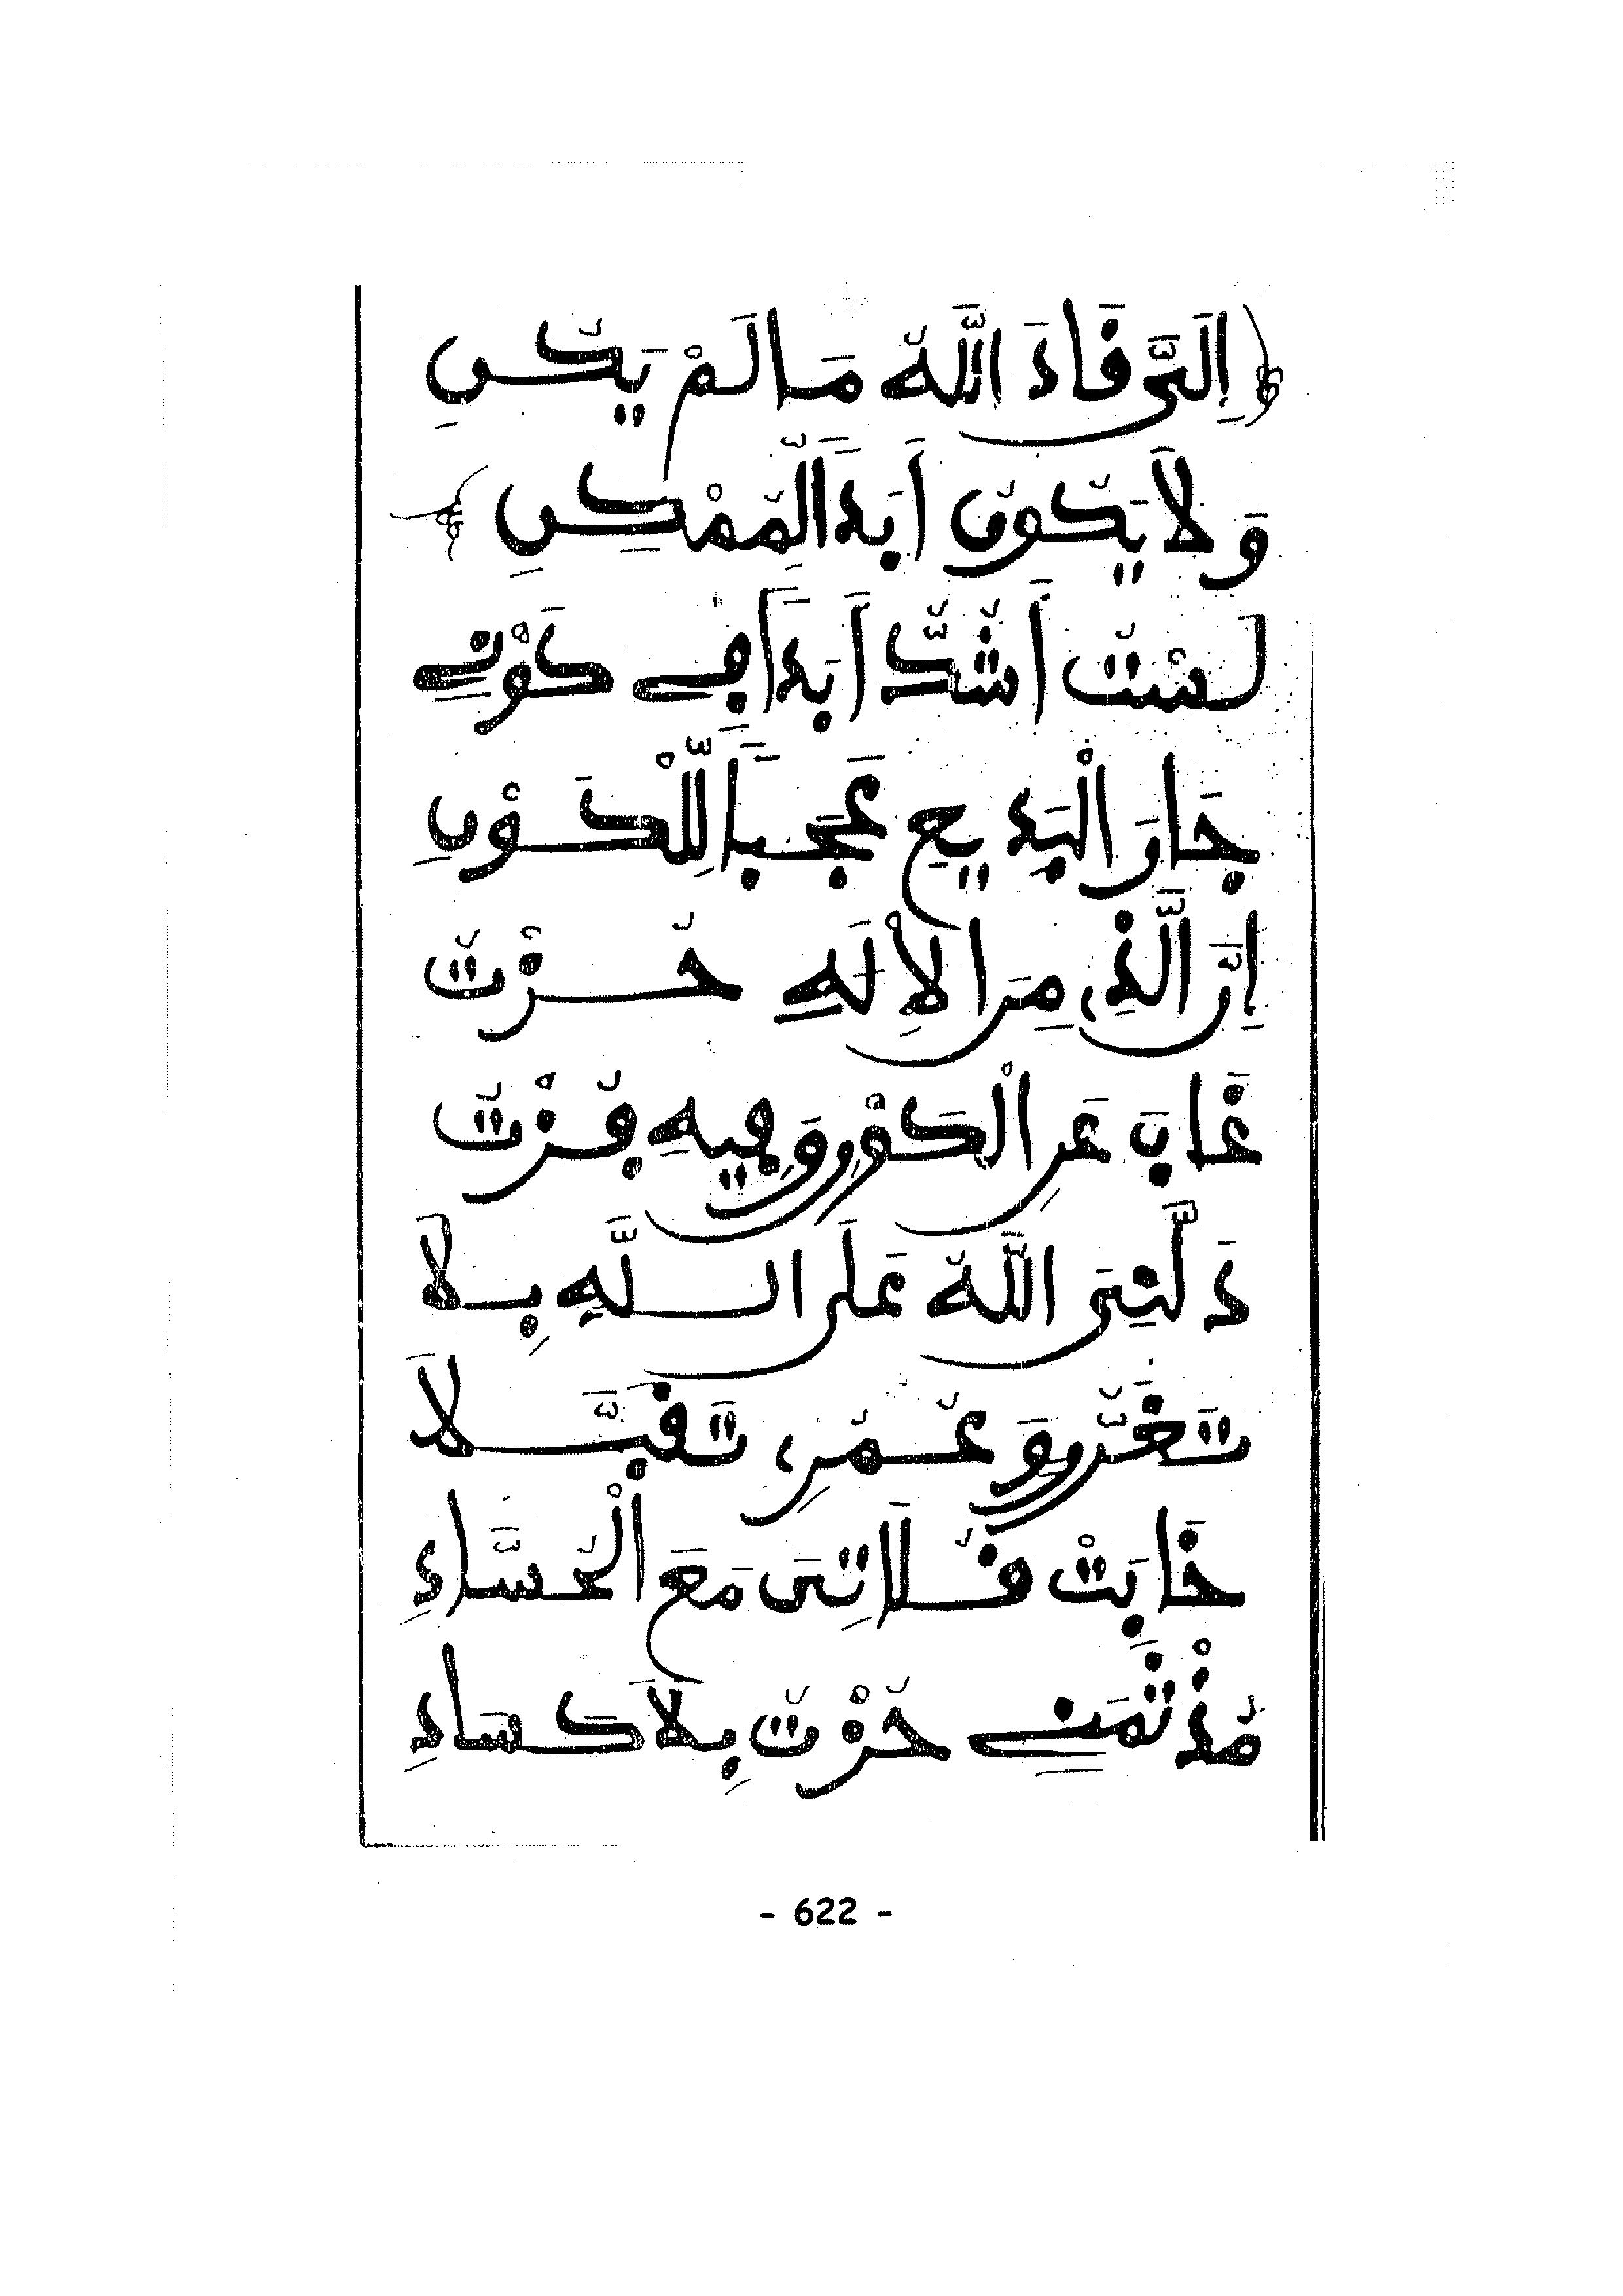 إِلَىَّ قَادَ اللَّهُ مَا لَمْ يَكُنِ
وَلَا يَكُونُ أَبَداً لِّمُمْكِنِ
لَسْتُ أَشُكُّ أَبَداً فِي كَوْنِي
جَاوَرَ الْبَدِيعِ عَجَباً لِّلْكَوْنِ
إِنَّ الَّذِي مِنَ الْإِلَهِ حُزْتُ
غَابَ عَنِ الْكَوْنِ وَفِيهِ فُزْتُ
دَلَّنِىَ اللَّهُ عَلَى اللَّهِ بِلَا
تَغَرُّرٍ وَعُمُرِي تَقَبَّلَا
خَابَتْ فُلَاتِىَ مَعَ الْحُسَّادِ
مُذْ ثَمَنِي حُزْتُ بِلَا كَسَادِ
- 622 -